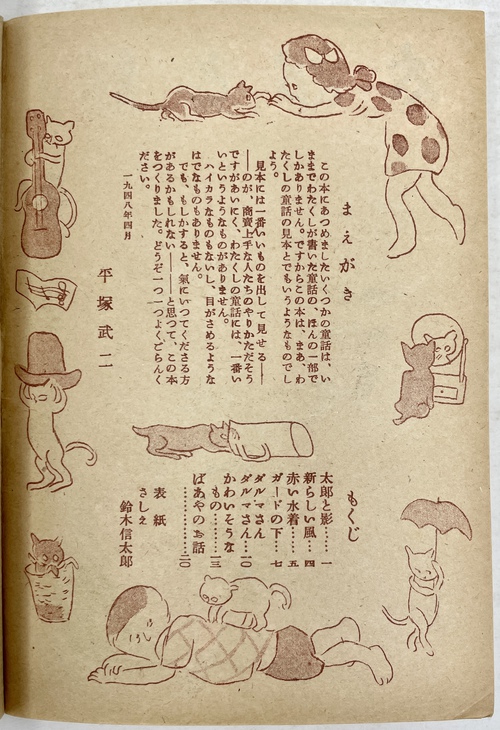 まえがき
この本にあつめましたいくつかの童話は、い
ままでわたくしが書いた童話の、ほんの一部で
しかありません。ですからこの本は、まあ、わ
たくしの童話の見本とでもいうようなものでし
よう。
見本には一番いいものを出して見せる――
――のが、商賣上手な人たちのやりかただそう
ですがあいにく、わたくしの童話には、一番い
いというようなものがありません。
ハイカラなものもないし、目がさめるような
はでなものもありません。
でも、もしかすると、氣にいつてくださる方
があるかもしれない――と思つて、この本
をつくりました。どうぞ一つ一つよくごらんく
ださい。
一九四八年四月
平塚武二
もくじ
太郎と影……一
新らしい風…四
赤い水着……五
ガードの下…七
ダルマさん
ダルマさん…一〇
かわいそうな
もの…一三
ばあやのお話
……………二〇
表紙
さしえ
鈴木信太郎